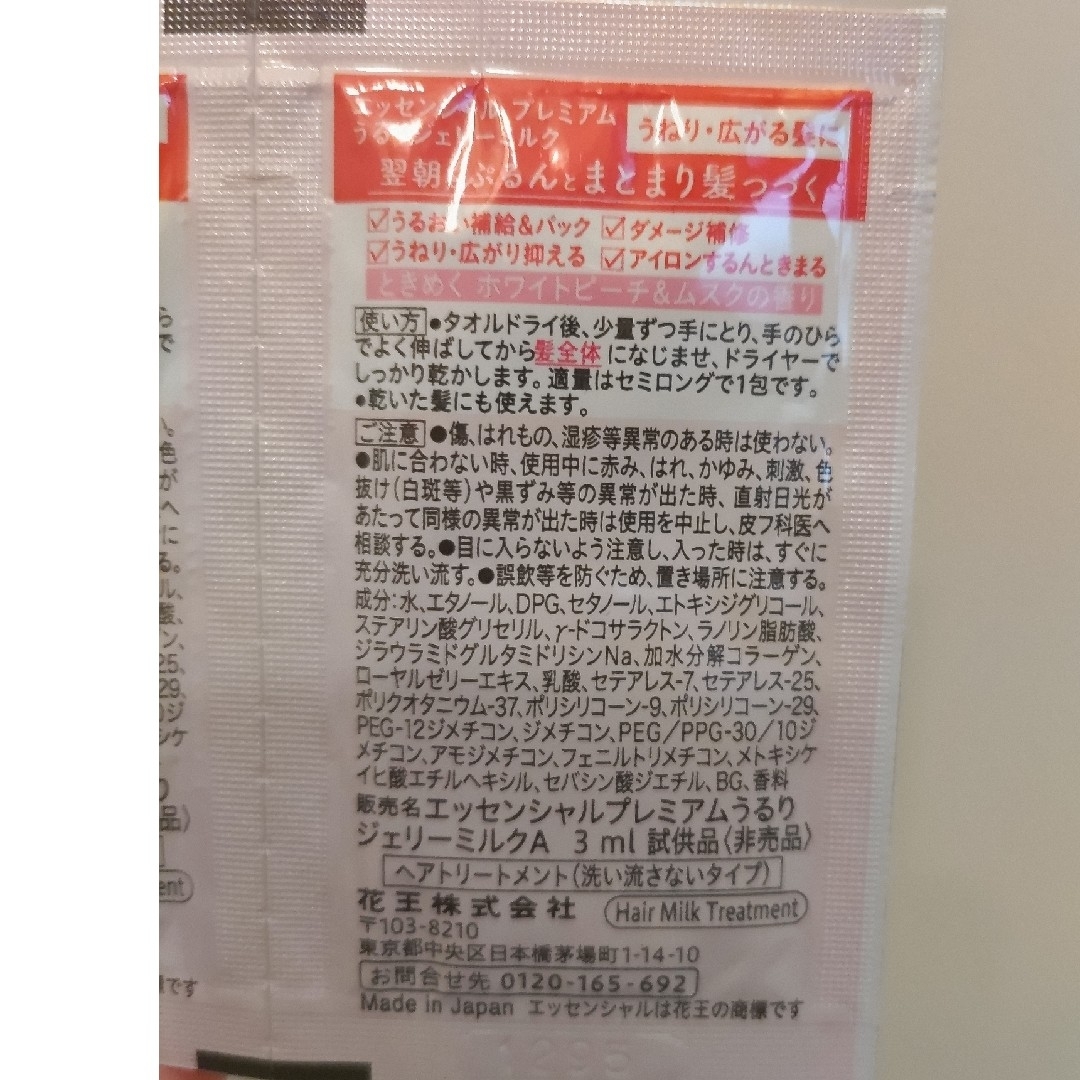 エッセンシャル プレミアム
うるりジェリーミルク
うねり・広がる髪に
翌朝もぷるんとまとまり髪つづく
☑うるおい補給&パック ☑ダメージ補修
☑うねり・広がり抑える ☑アイロンするんときまる
ときめく ホワイトピーチ&ムスクの香り
使い方 ●タオルドライ後、少量ずつ手にとり、手のひら
でよく伸ばしてから髪全体になじませ、ドライヤーで
しっかり乾かします。適量はセミロングで1包です。
●乾いた髪にも使えます。
ご注意 ●傷、はれもの、湿疹等異常のある時は使わない。
●肌に合わない時、使用中に赤み、はれ、かゆみ、刺激、色
抜け(白斑等)や黒ずみ等の異常が出た時、直射日光が
あたって同様の異常が出た時は使用を中止し、皮フ科医へ
相談する。●目に入らないよう注意し、入った時は、すぐに
充分洗い流す。●誤飲等を防ぐため、置き場所に注意する。
成分:水、エタノール、DPG、セタノール、エトキシジグリコール、
ステアリン酸グリセリル、γ-ドコサラクトン、ラノリン脂肪酸、
ジラウラミドグルタミドリシンNa、加水分解コラーゲン、
ローヤルゼリーエキス、乳酸、セテアレス-7、セテアレス-25、
ポリクオタニウム-37、ポリシリコーン-9、ポリシリコーン-29、
PEG-12ジメチコン、ジメチコン、PEG/PPG-30/10ジ
メチコン、アモジメチコン、フェニルトリメチコン、メトキシケ
イヒ酸エチルヘキシル、セバシン酸ジエチル、BG、香料
販売名エッセンシャルプレミアムうるり
ジェリーミルクA 3 ml 試供品〈非売品〉
ヘアトリートメント(洗い流さないタイプ)
花王株式会社 Hair Milk Treatment
〒103-8210
東京都中央区日本橋茅場町1-14-10
お問合せ先 0120-165-692
Made in Japan エッセンシャルは花王の商標です